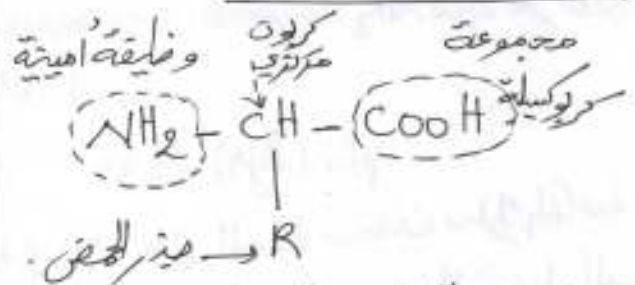 وظيفة أمينية
كربون مركزي
مجموعة كربوكسيلة
NH2 - CH - COOH
R → جذر الحمض.